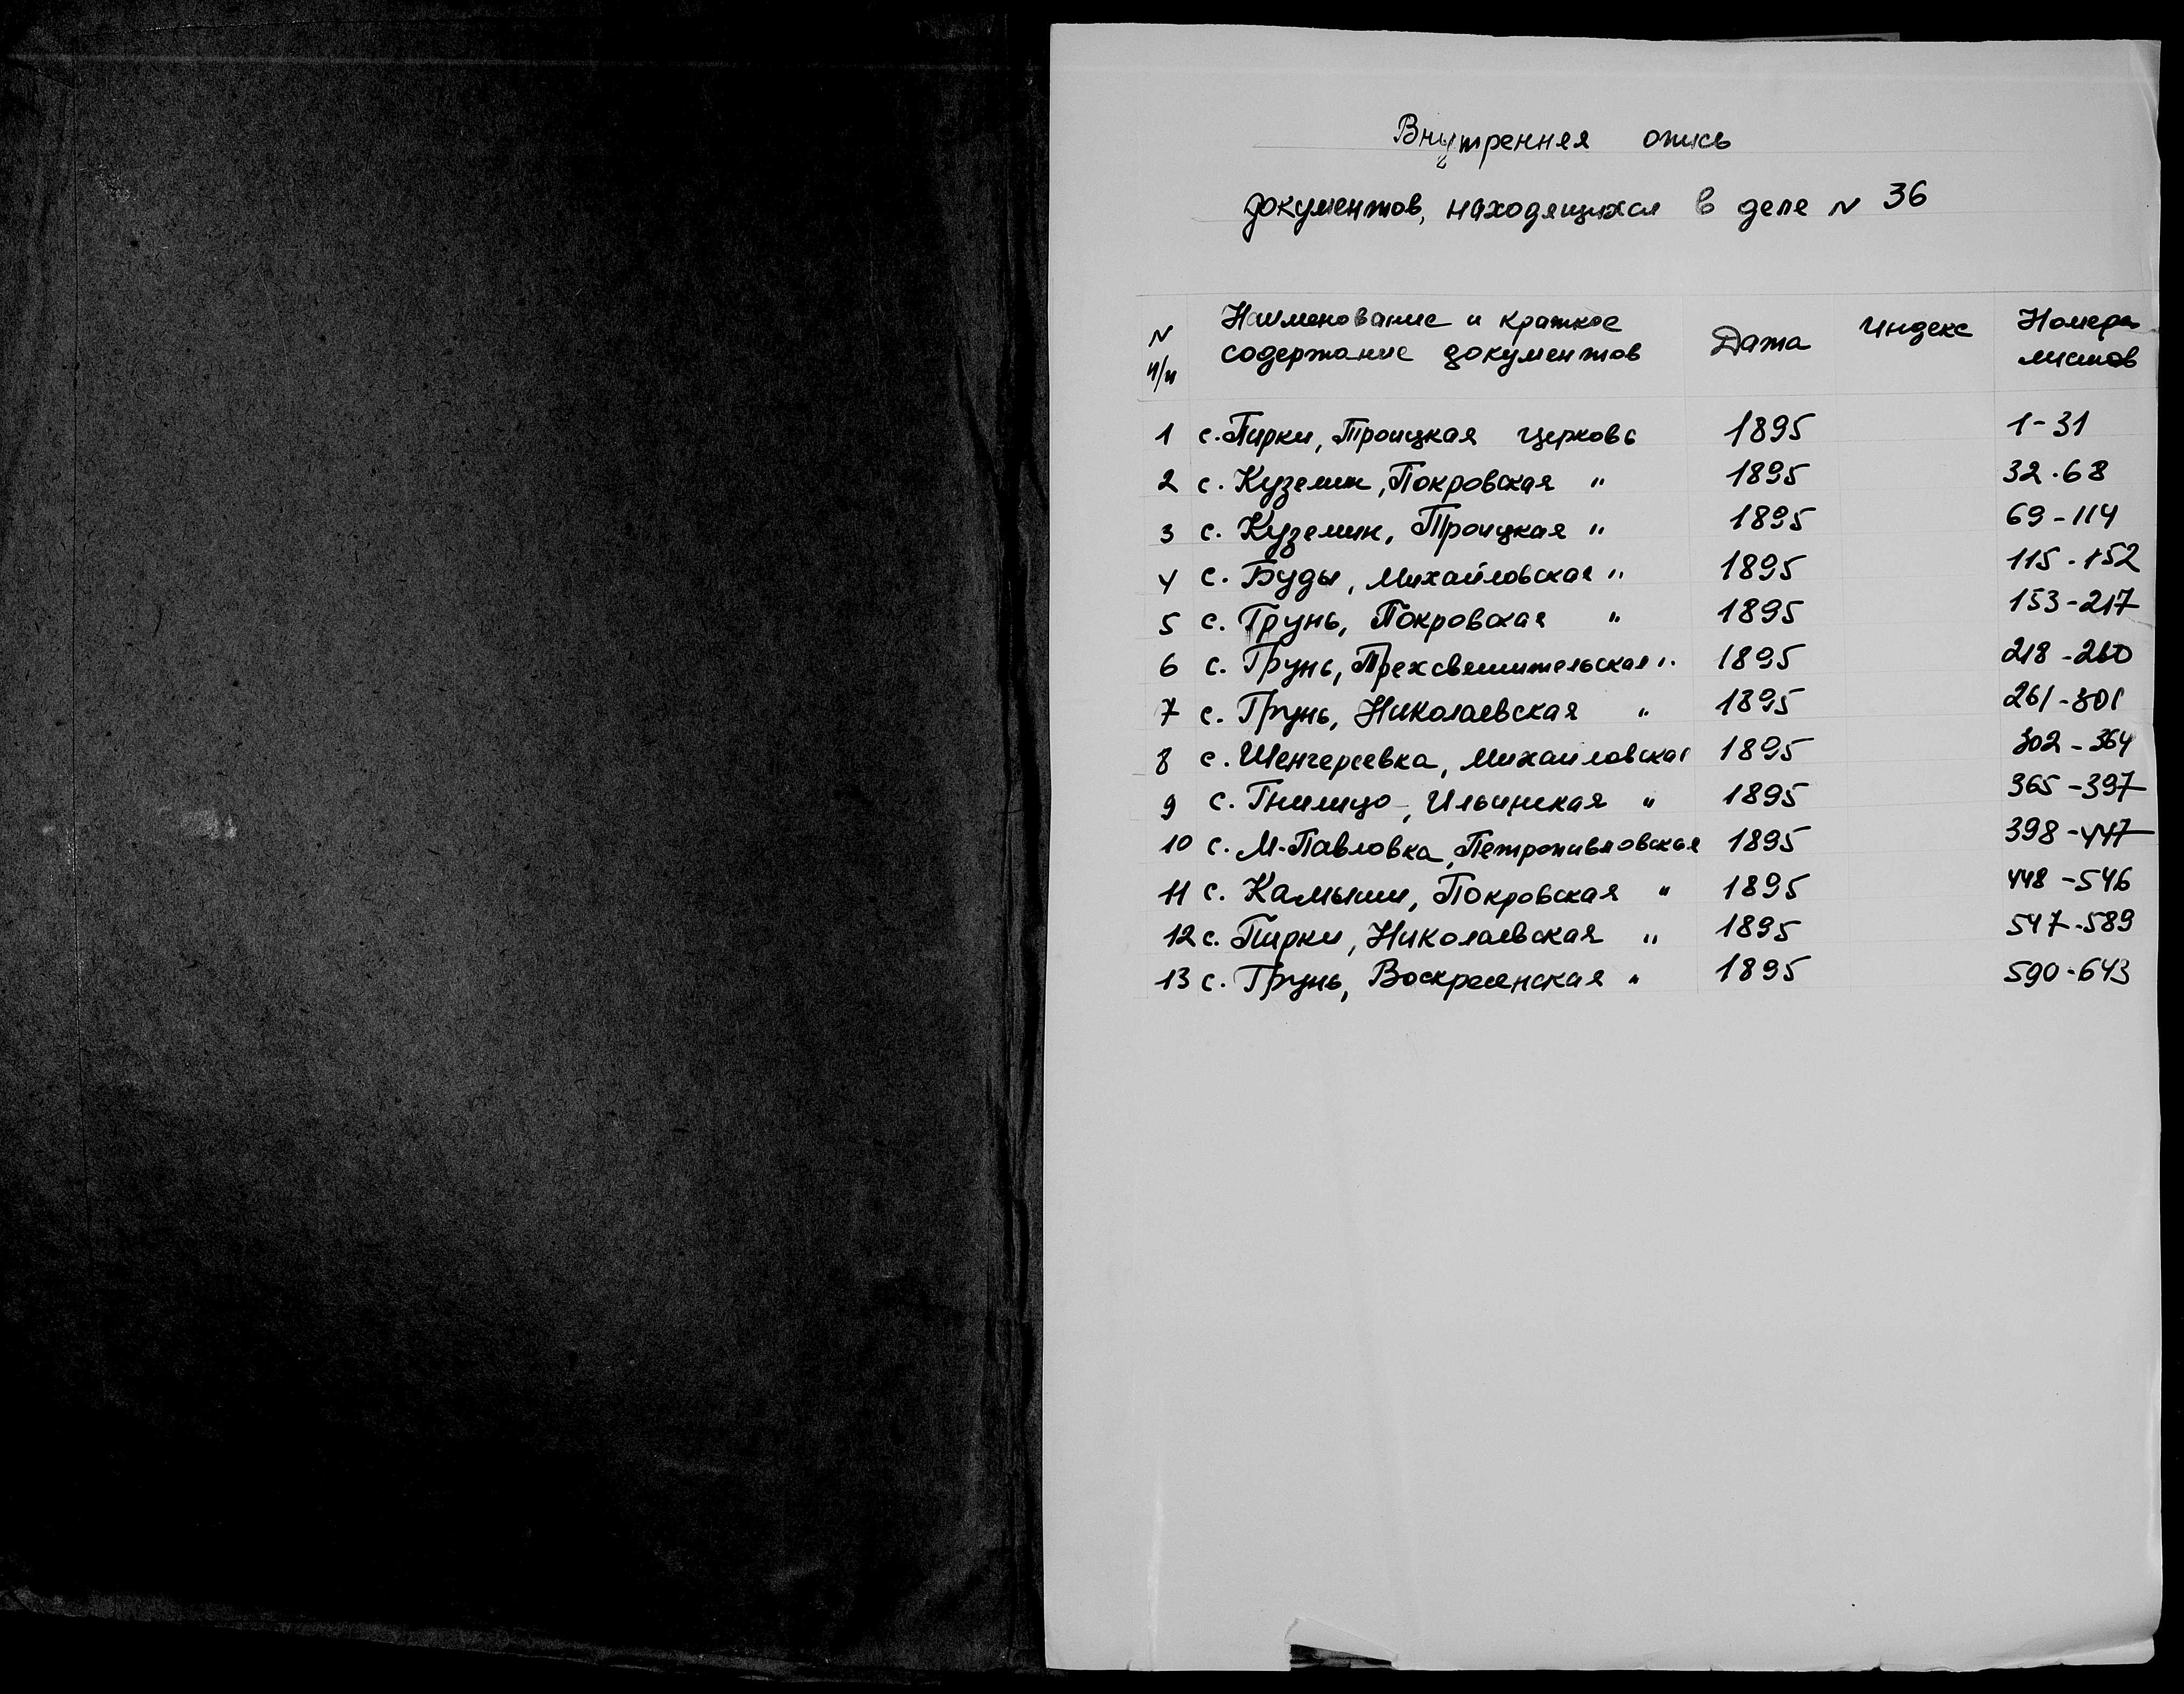 Внутренняя опись
документов, находящихся в деле N 36
N п/п Наименование и краткое содержание документов Дата Индекс Номера листов
1 с. Пирки, Троицкая церковь 1895 1-31
2 с. Куземин, Покровская " 1895 32-68
3 с. Куземин, Троицкая " 1895 69-114
4 с. Буды, Михайловская " 1895 115-152
5 с. Грунь, Покровская " 1895 153-217
6 с. Грунь, Трехсвятительская " 1895 218-260
7 с. Грунь, Николаевская " 1895 261-301
8 с. Шенгереевка, Михайловская 1895 302-364
9 с. Гнилицо, Ильинская " 1895 365-397
10 с. М-Павловка, Петропавловская 1895 398-447
11 с. Камыши, Покровская " 1895 448-546
12 с. Пирки, Николаевская " 1895 547-589
13 с. Грунь, Воскресенская " 1895 590-643